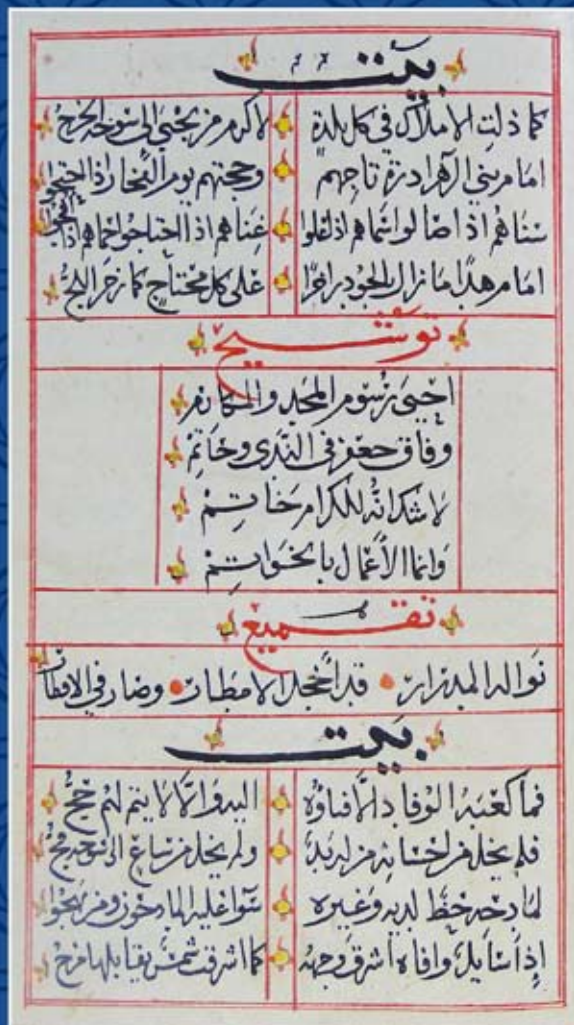 بيت
كما ذلت الاملاك في كل بلدة لاكرم من يجبى الى سوحه الخرج
امام بني الزهرا درة تاجهم وحجتهم يوم الفخار اذا احتجوا
سناهم اذا صالوا اذا علوا غناهم اذا احتاجوا حماهم اذا
امام هدا ما زال بالجود زاخرا على كل محتاج كما زخر اللج
توشيح
احيى رسوم المجد والمكارم
وفاق جعفر في الندى وحاتم
لا شك انه للكرام خاتم
وانما الأعمال بالخواتم
تقميع
نواله المدرار قد أخجل الامطار وصار في الاقطار
بيت
فما كعبة الوفاد الا فناؤه اليه والا لا يتم لهم حج
فلم يخل من احسانه من له يد ولم يخل من ساع الى سوحه فج
لمادحه حظ لديه وغيره سوا عليه المادحون ومن يهجوا
إذا سايل وافاه اشرق وجهه كما اشرقت شمس يقابلها مرج